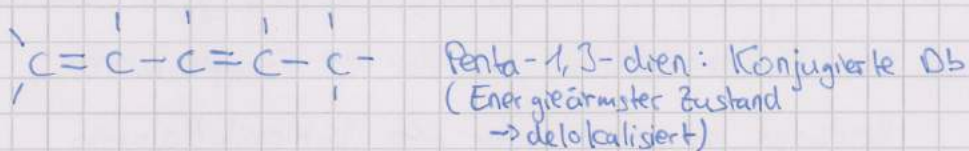 C = C - C = C - C - Penta-1,3-dien: Konjugierte Db
(Energieärmster Zustand
-> delokalisiert)